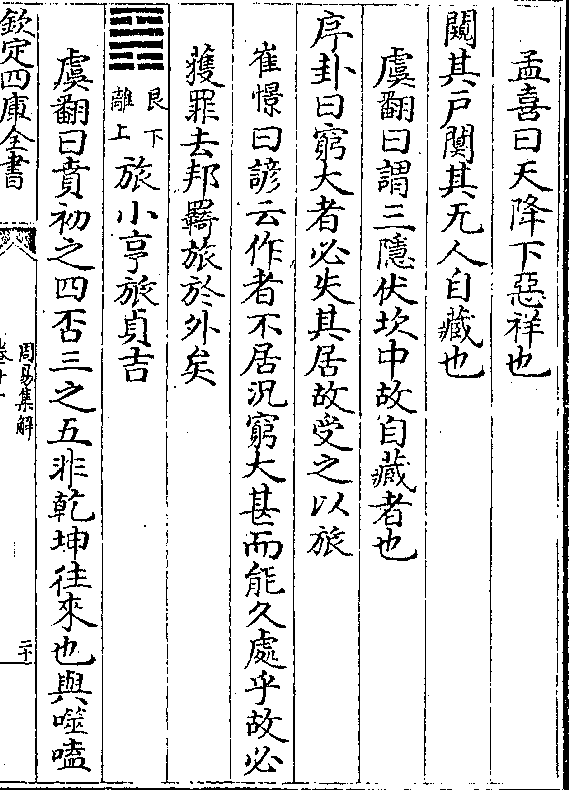 孟喜曰天降下惡祥也
闚其戸闃其无人自藏也
虞翻曰謂三隱伏坎中故自藏者也
序卦曰窮大者必失其居故受之以旅
崔憬曰諺云作者不居況窮大甚而能久處乎故必
獲罪去邦羇旅於外矣
䷷
艮下
離上
旅小亨旅貞吉
虞翻曰賁初之四否三之五非乾坤往來也與噬嗑
欽定四庫全書
周易集解
卷十一